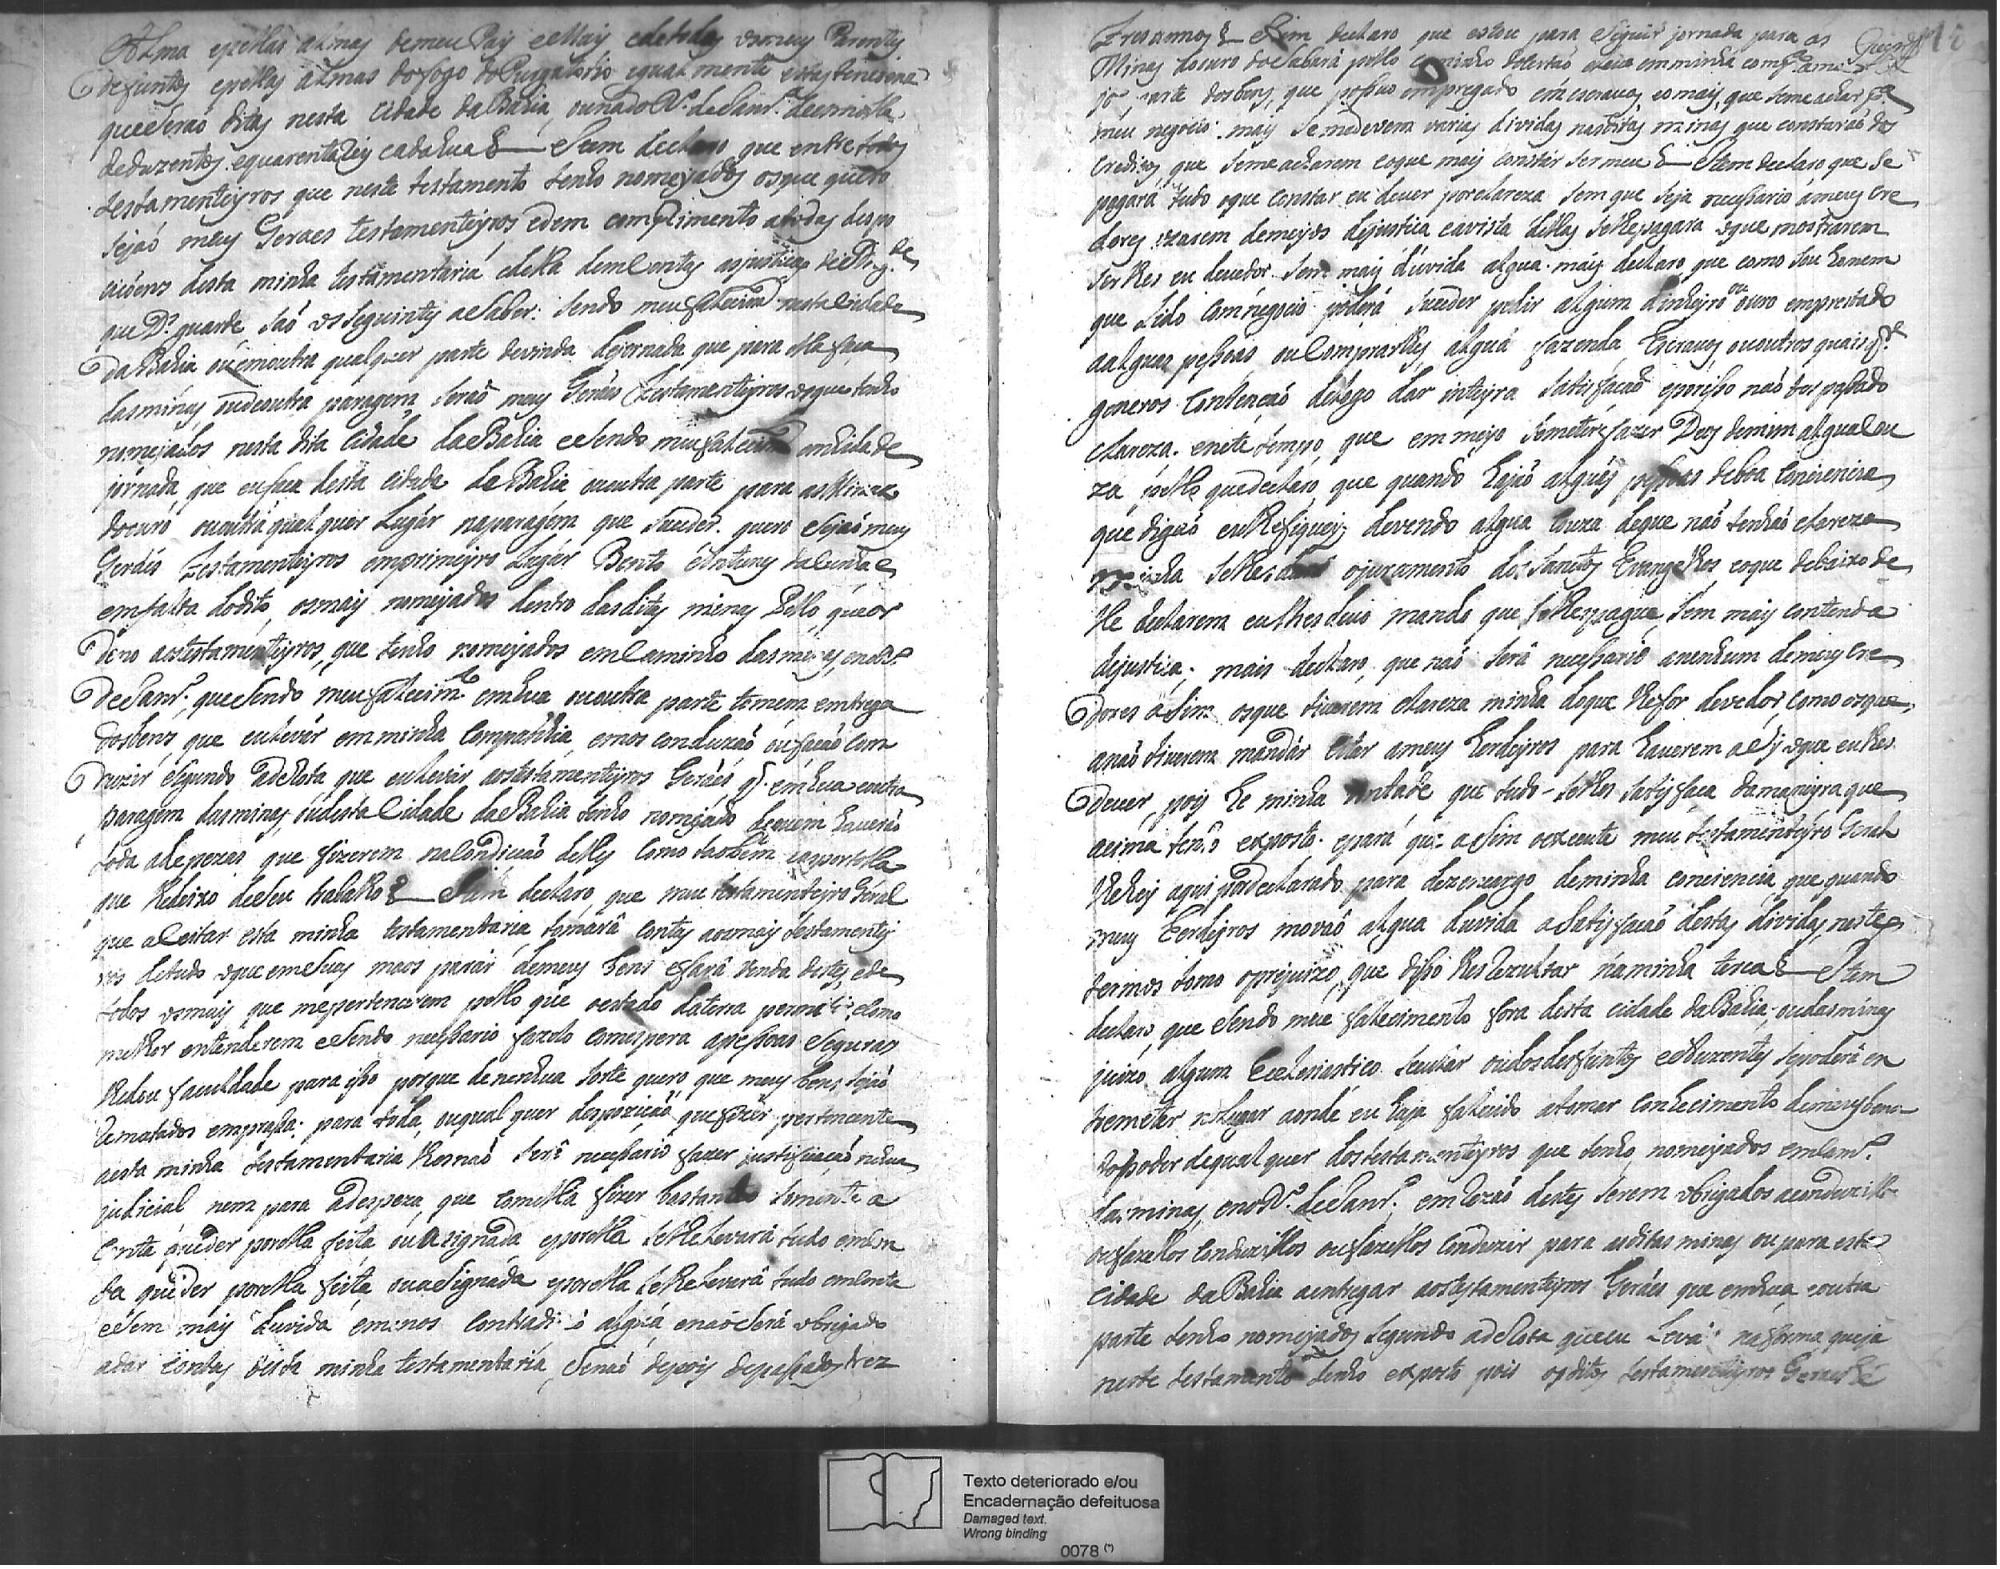 Alma epellas almas demeu Pay emay edetodos osmeus Parentes
defuntos epellas almas dofogo doPurgatorio egualmente estas
queSerão ditas nesta Cidade daBahia, ounadoR.º deSanf.co deesmolla
deduzentos equarentaReis cadahua & Item declaro que entretodos
testamenteyros que neste testamento tenho nomeyados osque quero
Sejaó meus Geraes testamenteyros edem comprimento atodas despo
ciçoens desta minha testamentaria edella demContas asjustiças deS Mag.de
que D.s guarde Saó osSeguintes aSaber: Sendo meuFalecim.to nestaCidade
daBahia ouemoutra qualquer parte devinda dejornada que para ella faça
dasminas, oudeoutra paragem Seraó meus Geraes Testamenteyros osque tenho
nomeyados nesta dita Cidade daBahia eSendo meufalecim.to emhida de
jornada que eufaça desta cidade daBahia ououtra parte para asMinas
doouro ououtra qualquer Lugar naparagem que Suceder. quero Sejaómeus
Geraes Testamenteyros emprimeyro Lugar Bento Antunes daCunha e
emfalta dodito, osmais nomeyados dentro dasditas minas Pello que or
deno aostestamenteyros, que tenho nomeyados emCaminho dasminas, enoR.º
deSanf.co, queSendo meufalecim.to emhua ououtra parte tomem entrega
dosbens que eulevar emminha Companhia, emos conduzaó oufaçaó Con
duzir eSegundo aderrota que eulevar aostestamenteyros Geraes q̃. emhua eoutra
paragem dasminas, oudesta Cidade daBahia tenho nomeyado dequem haveraó
toda adespezas que fizerem naCondução delles como tambem
que lhedeixo deSeu trabalho & Item declaro, que meu testamenteyro Geral
que aCeitar esta minha testamentaria tomará contas aosmais testamentey
ros detudo oque emSuas maos parar demeus bens efará venda destes, ede
todos osmais que mepertencerem pello que oestado daterra permitir, eComo
melhor entenderem eSendo necessario fazelo comespera apessoas Seguras
lhedou faculdade para isso porque de nenhua Sorte quero que meus bens Sejaó
Rematados empraça: para toda, ouqual quer despozição, quefizer pertencente
aesta minha testamentaria lhenaó Será necessario fazer justificação nehua
judicial nem para adespeza, que comella fizer bastando Somente a
Conta queder porella feita ouaSignada eporella SelheLevará tudo emCon
ta queder porella feita, ouaSignada eporella Selhelevará tudo emConta
eSem mais duvida emenos Contradição algũa, enaoSerá obrigado
adar Contas desta minha testamentaria, Senaó depois depassados trez
Tresannos & Item declaro que estou para Seguir jornada para as
Minas doouro doSabará pello Caminho doSertaó
parte dosbens, que possuo empregado emescravos, eomais, que Semeachar
meu negocio: mais Semedevem varias dividas nasditas minas que constaráó dos
Creditos, que Semeacharem eoque mais constar Sermeu & Item declaro que Se
pagará tudo oque Constar eu dever porclareza Sem que Seja necessario ameus Cre
dores uzarem demeyos dejustiça eavista dellas Selhepagará oque mostrarem
Serlhes eu devedor. Sem mais duvida algua. mais declaro que como Sou homem
que Lido Comnegocio poderá Suceder pedir algum dinheyro ou ouro emprestado
aalguas pessoas, ouComprarlhes algũa fazenda, Escravos ououtros quaisq.er
generos. Comtenção delogo dar inteyra Satisfação eporisso naó ter passado
clareza. eneste tempo, que em meyo Semeter fazer Deos demim algualeu
za pello quedeclaro, que quando hajaó algũas pessoas deboa Conciencia
que digaó eulhefiquey devendo algua Couza deque naó tenhaó clareza
minha Selhes ojuramento dos Sanctos Evangelhos, eoque debaixo de
lle declararem eulhesdevo mando que Selhespague, Sem mais contenda
dejustiça; mais declaro, que naó Será necessario anenhum demeus Cre
dores aSim osque tiverem clareza minha doque lhefor devedor, como osque
anaó tiverem mandar Citar ameus herdeyros para haverem aSy oque eulhes
dever, pois he minha vontade que tudo Selhes Satisfaça damaneyra que
acima tenho exposto. epará que aSim oexecute meu testamenteyro Geral
lhehey aqui pordeclarado para dezencargo deminha conciencia que quando
meus herdeyros movaó algua duvida aSatisfação destas dividas, nestes
termos tomo oprejuizo, que disso lhesRezultar naminha terça & Item
declaro que Sendo meu falecimento fora desta cidade daBahia, oudasminas
juizo algum Eccleziastico Secular oudosdefuntos eauzentes Sepoderá en
tremeter noLugar aonde eu haja falecido atomar conhecimento demeusbens
dopoder dequal quer dostestamenteyros que tenho nomeyados emCam.º
dasminas, enoR.º deSanf.co, emRezaó destes Serem obrigados aconduzillos
oufazellos Conduzillos oufazellos Conduzir para asditas minas ou para esta
cidade daBahia aentregar aostestamenteyros Geráes que emhua, eoutra
parte tenho nomeyados Segundo aderrota queeu Levar naforma queja
neste testamento tenho exposto pois osditos testamenteyros Geraes hé
Texto deteriorado e/ou
Encadernação defeituosa
Damaged text.
Wrong binding
0078 (*)